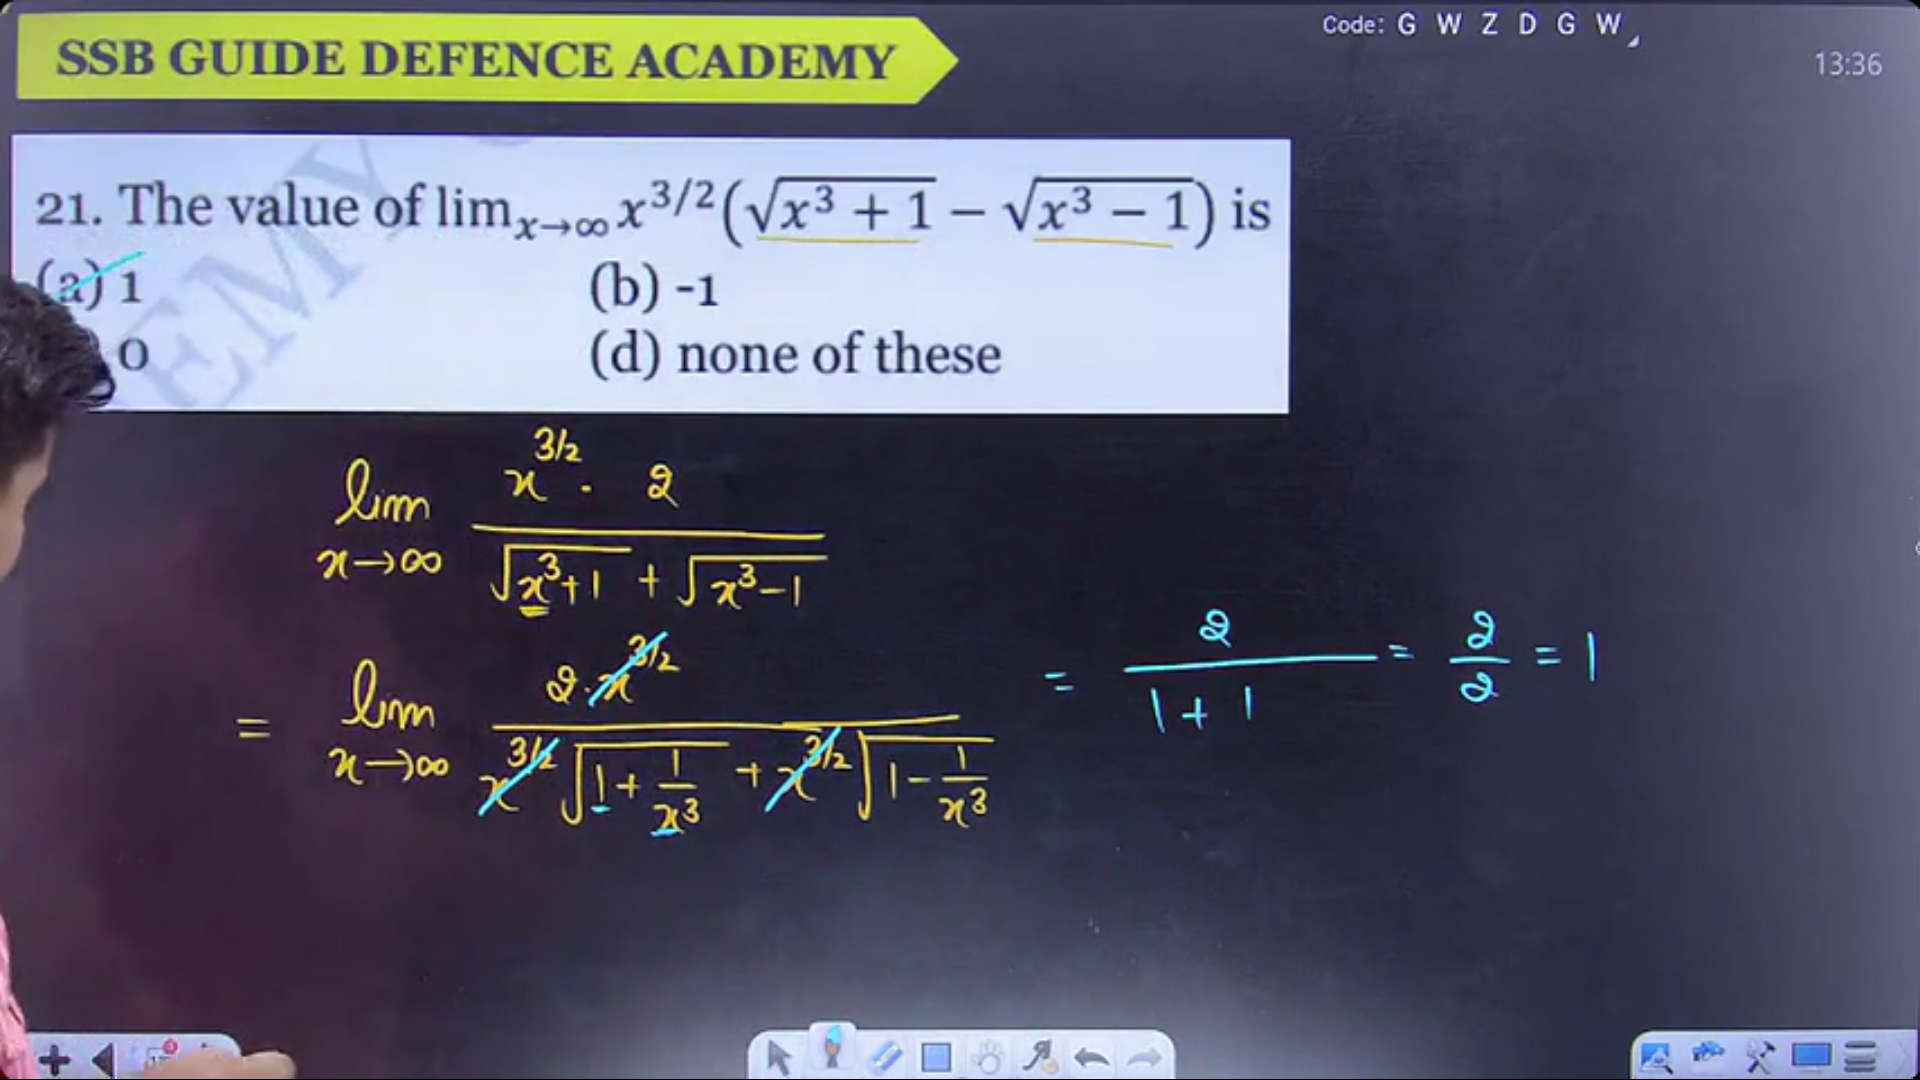 Code: G W Z D G W
SSB GUIDE DEFENCE ACADEMY
13:36
21. The value of lim_{x→∞} x^{3/2}(√(x³ + 1) − √(x³ − 1)) is
(a) 1 (b) -1
0 (d) none of these
lim_{x→∞} x^{3/2} · 2 / (√(x³+1) + √(x³−1))
= lim_{x→∞} 2·x^{3/2} / (x^{3/2} √(1+1/x³) + x^{3/2} √(1−1/x³)) = 2/(1+1) = 2/2 = 1